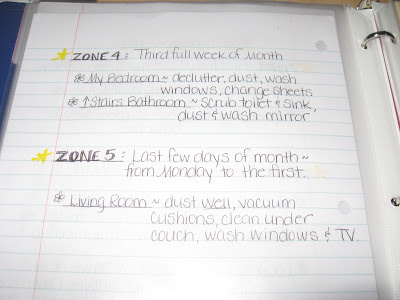 ZONE 4: Third full week of Month
My Bedroom ~ declutter, dust, wash
windows, change sheets
↑Stairs Bathroom ~ Scrub toilet & sink,
dust & wash mirror
ZONE 5: Last few days of month ~
from Monday to the first.
Living Room ~ dust well, vacuum
cushions, clean under
couch, wash windows & TV.